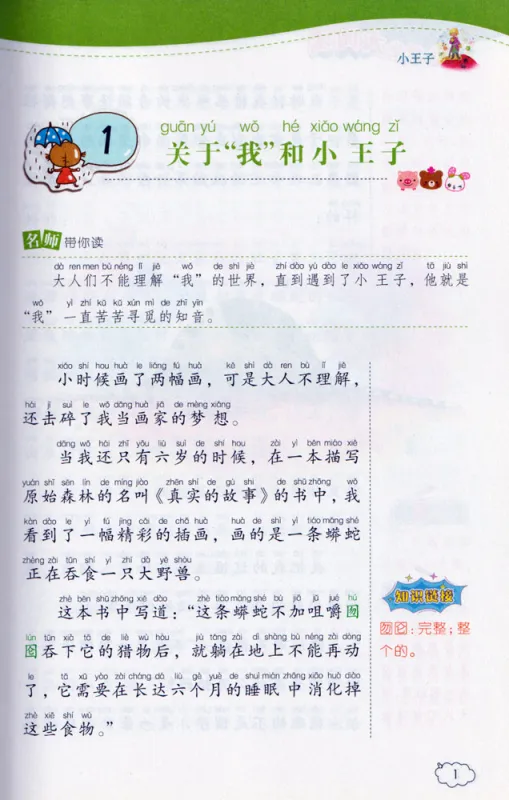 小王子
1
guān yú wǒ hé xiǎo wáng zǐ
关于“我”和小王子
名师带你读
dà ren men bù néng lǐ jiě wǒ de shì jiè zhí dào yù dào le xiǎo wáng zǐ tā jiù shì
大人们不能理解“我”的世界，直到遇到了小王子，他就是
wǒ yì zhí kǔ kǔ xún mì de zhī yīn
“我”一直苦苦寻觅的知音。
xiǎo shí hou huà le liǎng fú huà kě shì dà rén bù lǐ jiě
小时候画了两幅画，可是大人不理解，
hái jī suì le wǒ dāng huà jiā de mèng xiǎng
还击碎了我当画家的梦想。
dāng wǒ hái zhǐ yǒu liù suì de shí hou zài yì běn miáo xiě
当我还只有六岁的时候，在一本描写
yuán shǐ sēn lín de míng jiào zhēn shí de gù shi de shū zhōng wǒ
原始森林的名叫《真实的故事》的书中，我
kàn dào le yì fú jīng cǎi de chā huà huà de shì yì tiáo mǎng shé
看到了一幅精彩的插画，画的是一条蟒蛇
zhèng zài tūn shí yì zhī dà yě shòu
正在吞食一只大野兽。
zhè běn shū zhōng xiě dào zhè tiáo mǎng shé bù jiā jǔ jué hú
这本书中写道：“这条蟒蛇不加咀嚼囫
lún tūn xià tā de liè wù hòu jiù tǎng zài dì shàng bù néng zài dòng
囵吞下它的猎物后，就躺在地上不能再动
le tā xū yào zài cháng dá liù gè yuè de shuì mián zhōng xiāo huà diào
了，它需要在长达六个月的睡眠中消化掉
zhè xiē shí wù
这些食物。”
知识链接
囫囵：完整；整
个的。
1